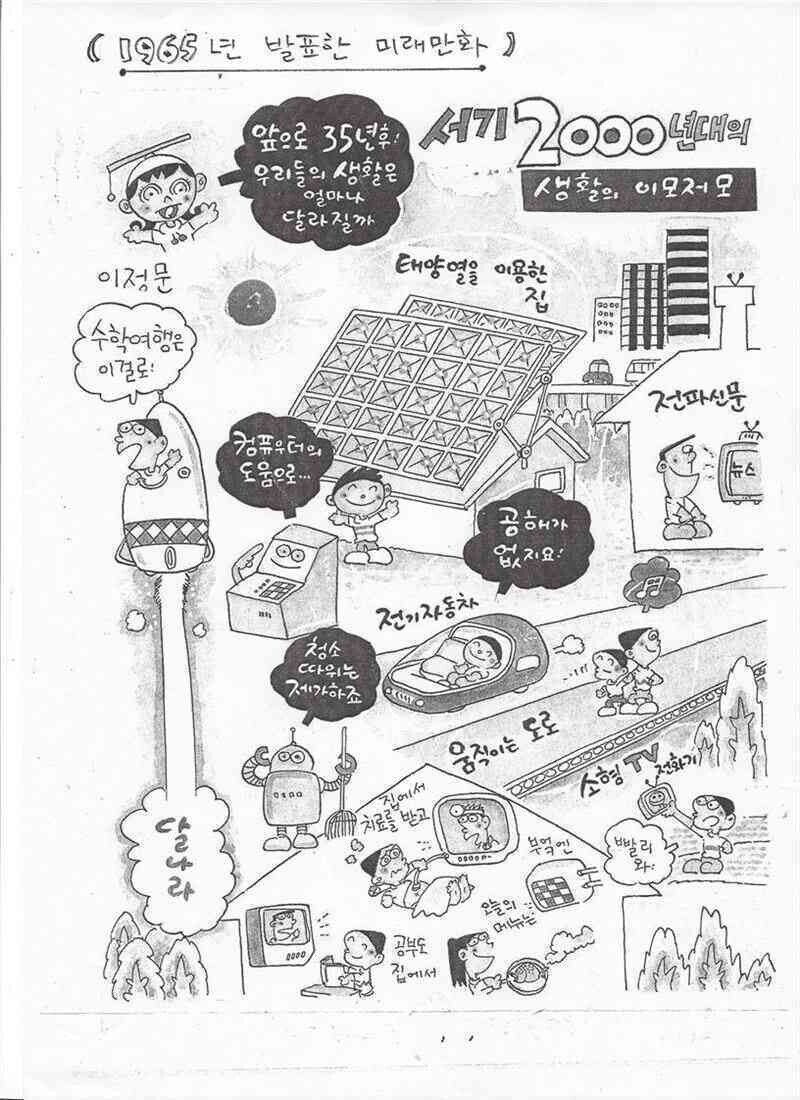 ( 1965년 발표한 미래만화 )
앞으로 35년후!
우리들의 생활은
얼마나
달라질까
서기 2000년대의
생활의 이모저모
이정문
태양열을 이용한
집
수학여행은
이걸로!
전파신문
뉴스
컴퓨우터의
도움으로...
공해가
없지요!
전기자동차
청소
따위는
제가하죠
움직이는 도로
소형 TV
전화기
달나라
집에서
치료를 받고
부엌엔
빨리
와!
오늘의
메뉴는
공부도
집에서